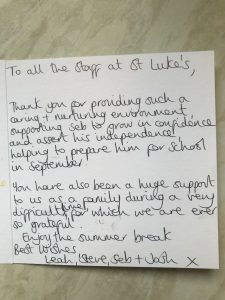 To all the Staff at St Luke's,
Thank you for providing such a
caring + nurturing environment,
supporting Seb to grow in confidence
and assert his independence!
helping to prepare him for school
in September.
You have also been a huge support
to us as a family during a very
difficult time for which we are ever
so grateful.
Enjoy the summer break
Best Wishes
Leah, Steve, Seb + Josh x